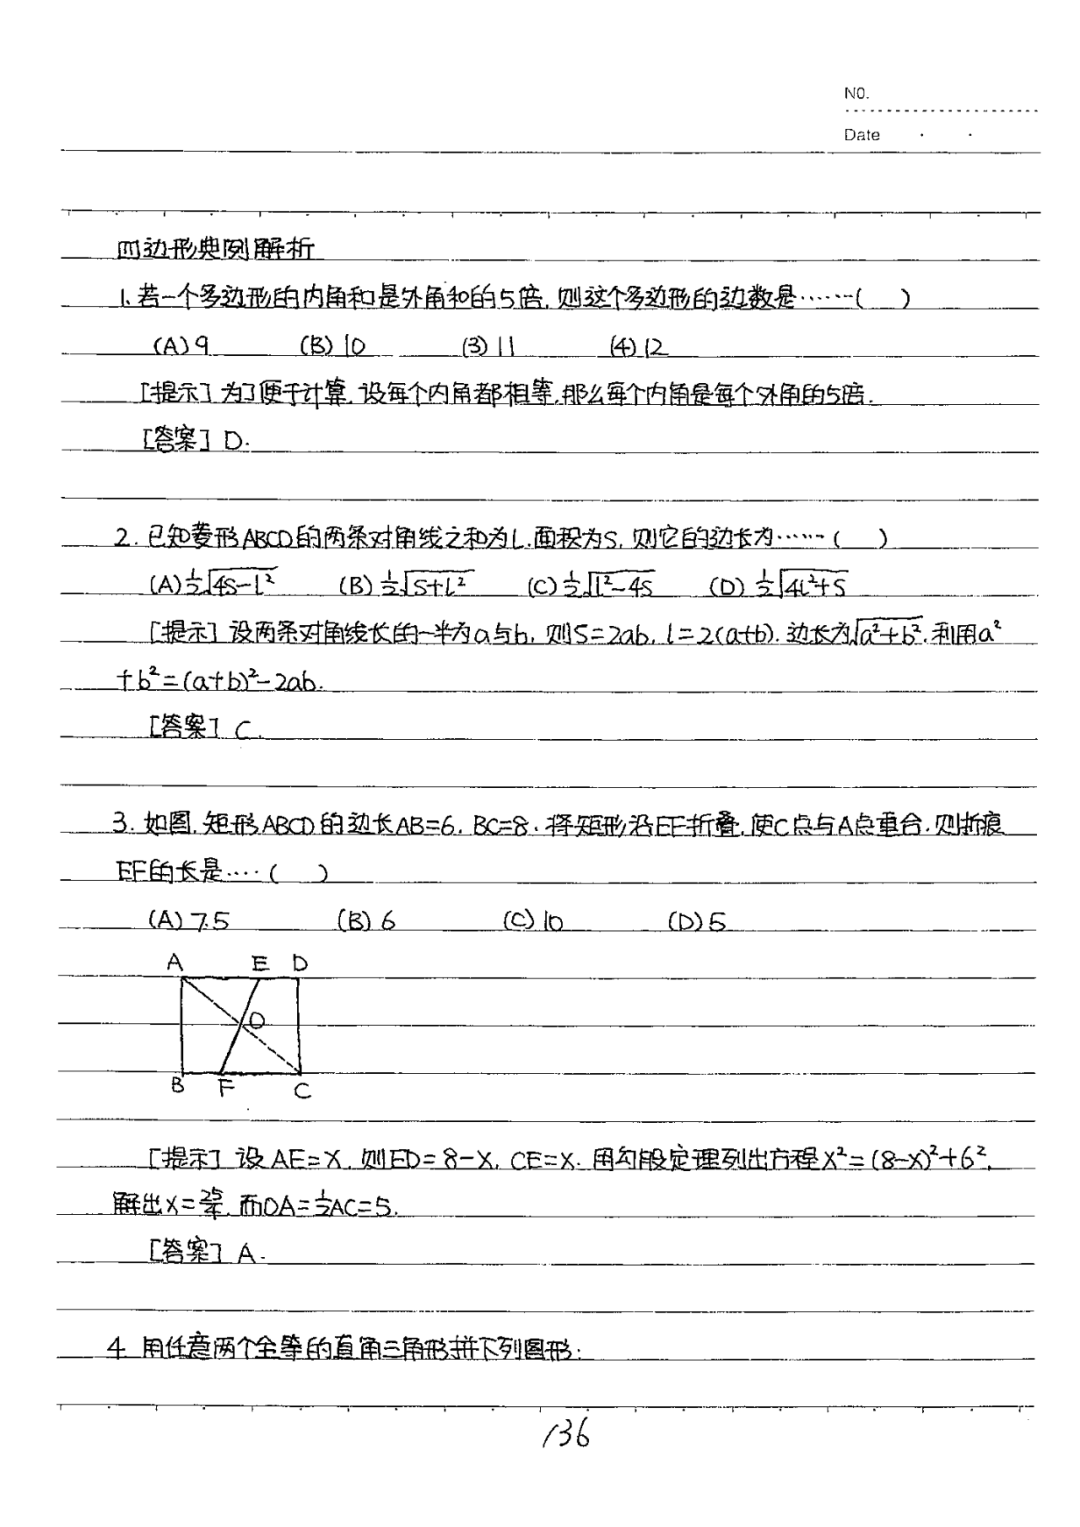 NO.
Date
四边形典例解析
1. 若一个多边形的内角和是外角和的5倍, 则这个多边形的边数是……( )
(A) 9 (B) 10 (3) 11 (4) 12
[提示] 为了便于计算, 设每个内角都相等, 那么每个内角是每个外角的5倍.
[答案] D.
2. 已知菱形ABCD的两条对角线之和为L, 面积为S, 则它的边长为……( )
(A) ½√(4S-L²) (B) ½√(S+L²) (C) ½√(l²-4S) (D) ½√(4L²+S)
[提示] 设两条对角线长的一半为a与b, 则S=2ab, l=2(a+b). 边长为√(a²+b²), 利用a²
+b²=(a+b)²-2ab.
[答案] C.
3. 如图, 矩形ABCD的边长AB=6, BC=8, 将矩形沿EF折叠, 使C点与A点重合, 则折痕
EF的长是….( )
(A) 7.5 (B) 6 (C) 10 (D) 5
A E D
O
B F C
[提示] 设AE=X, 则ED=8-X, CE=X. 用勾股定理列出方程X²=(8-X)²+6²,
解出X=25/4, 而OA=½AC=5.
[答案] A.
4. 用任意两个全等的直角三角形拼下列图形:
136